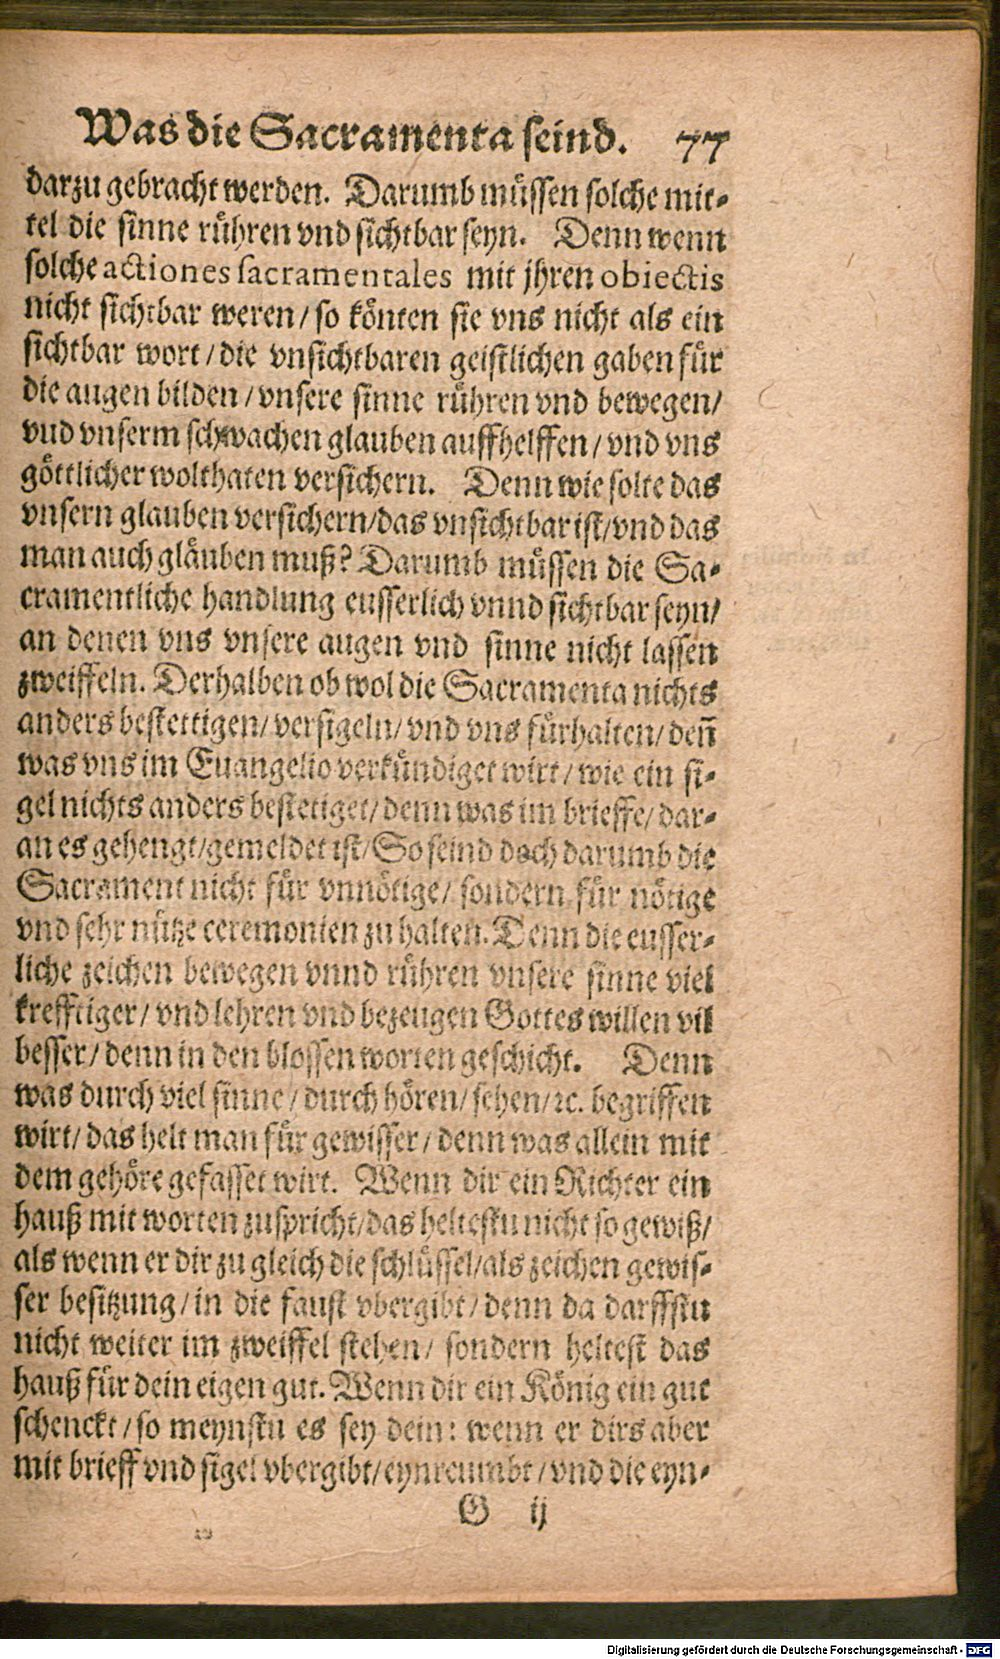 Was die Sacramenta seind. 77
darzu gebracht werden. Darumb müssen solche mit-
tel die sinne rühren vnd sichtbar seyn. Denn wenn
solche actiones sacramentales mit jhren obiectis
nicht sichtbar weren/ so könten sie vns nicht als ein
sichtbar wort/ die vnsichtbaren geistlichen gaben für
die augen bilden/ vnsere sinne rühren vnd bewegen/
vud vnserm schwachen glauben auffhelffen/ vnd vns
göttlicher wolthaten versichern. Denn wie solte das
vnsern glauben versichern/ das vnsichtbar ist/ vnd das
man auch gläuben muß? Darumb müssen die Sa-
cramentliche handlung eusserlich vnnd sichtbar seyn/
an denen vns vnsere augen vnd sinne nicht lassen
zweiffeln. Derhalben ob wol die Sacramenta nichts
anders bestettigen/ versigeln/ vnd vns fürhalten/ deñ
was vns im Euangelio verkündiget wirt/ wie ein si-
gel nichts anders bestetiget/ denn was im brieffe/ dar-
an es gehengt/ gemeldet ist/ So seind doch darumb die
Sacrament nicht für vnnötige/ sondern für nötige
vnd sehr nütze ceremonien zu halten. Denn die eusser-
liche zeichen bewegen vnnd rühren vnsere sinne viel
krefftiger/ vnd lehren vnd bezeugen Gottes willen vil
besser/ denn in den blossen worten geschicht. Denn
was durch viel sinne/ durch hören/ sehen/ ꝛc. begriffen
wirt/ das helt man für gewisser/ denn was allein mit
dem gehöre gefasset wirt. Wenn dir ein Richter ein
hauß mit worten zuspricht/ das heltestu nicht so gewiß/
als wenn er dir zu gleich die schlüssel/ als zeichen gewis-
ser besitzung/ in die faust vbergibt/ denn da darffstu
nicht weiter im zweiffel stehen/ sondern heltest das
hauß für dein eigen gut. Wenn dir ein König ein gut
schenckt/ so meynstu es sey dein: wenn er dirs aber
mit brieff vnd sigel vbergibt/ eynreumbt/ vnd die eyn-
G ij
Digitalisierung gefördert durch die Deutsche Forschungsgemeinschaft - DFG